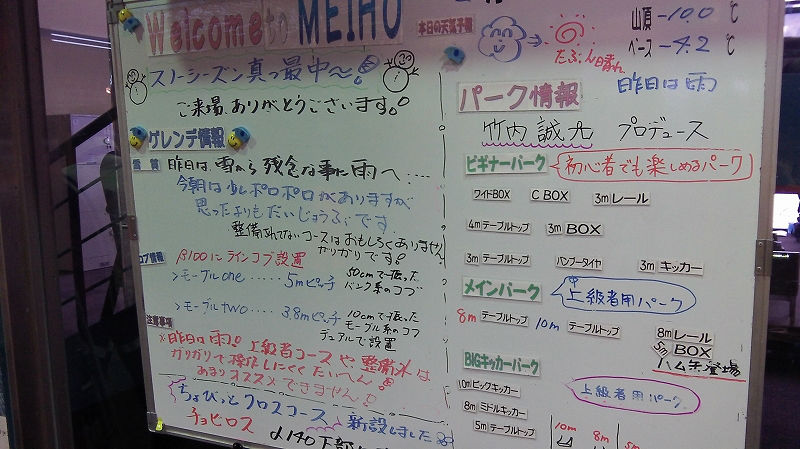 Welcome to MEIHO
本日の天気予報
たぶん晴れ
山頂 -10.0 ℃
ベース -4.2 ℃
昨日は雨
スノーシーズン真っ最中〜!
ご来場、ありがとうございます。
ゲレンデ情報
雪質
昨日は、雪から残念な事に雨へ‥‥
今朝は少しポロポロがありますが
思ったよりもだいじょうぶです。
整備されてないコースはおもしろくありません
ガリガリです!
コブ情報
β100にラインコブ設置
>モーグルone ‥‥‥ 5mピッチ
50cmで掘った
バンク系のコブ
>モーグルtwo ‥‥‥ 3.8mピッチ
10cmで掘った
モーグル系のコブ
デュアルで設置
注意事項
※昨日は雨!上級者コースや整備外は
ガリガリで操作しにくくたいへん
あまりオススメできません!
ちょびっとクロスコース
チョビクロス
新設しました
α140下部
パーク情報
竹内 誠九 プロデュース
ビギナーパーク
初心者でも楽しめるパーク
ワイドBOX C BOX 3mレール
4mテーブルトップ 3m BOX
3mテーブルトップ バンブータイヤ 3mキッカー
メインパーク
上級者用パーク
8m テーブルトップ 10m テーブルトップ 8mレール
5m BOX
ハム矢登場
BIGキッカーパーク
上級者用パーク
10mビックキッカー
8mミドルキッカー
5mテーブルトップ
10m 8m 5m